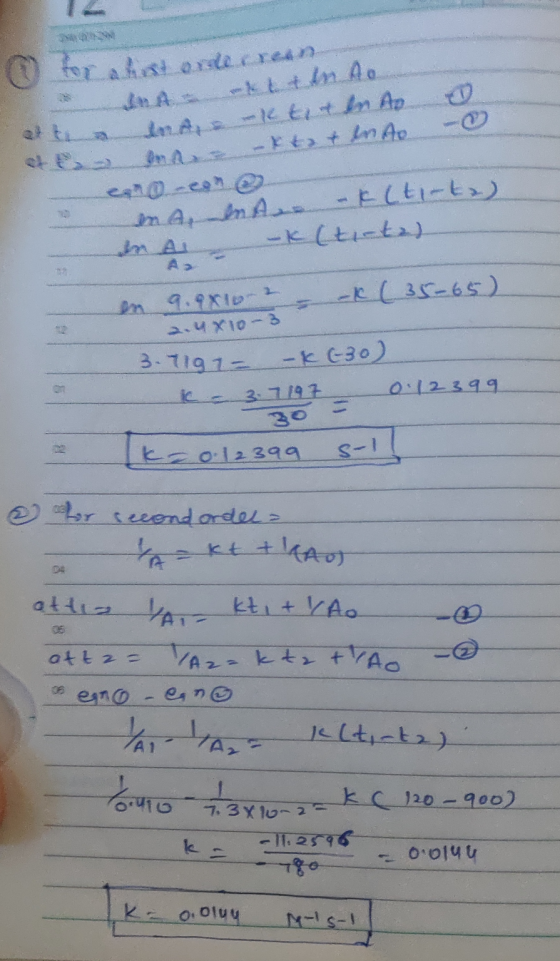 12
① for a first order rean
ln A = -kt + ln A0
at t1 ⇒ ln A1 = -k t1 + ln A0 ①
at t2 ⇒ ln A2 = -k t2 + ln A0 -②
eqn ① - eqn ②
10
ln A1 - ln A2 = -k (t1-t2)
ln A1/A2 = -k (t1-t2)
11
ln 9.9X10-2/2.4X10-3 = -k (35-65)
12
3.7197 = -k (-30)
01
k = 3.7197/30 = 0.12399
02
k = 0.12399 s-1
03
② for second order =
1/A = kt + 1/(A0)
04
at t1 ⇒ 1/A1 = kt1 + 1/A0 -①
05
at t2 = 1/A2 = k t2 + 1/A0 -②
06
eqn ① - eqn ②
1/A1 - 1/A2 = k(t1-t2)
1/0.410 - 1/7.3X10-2 = k ( 120 - 900)
k = -11.2596/-780 = 0.0144
k = 0.0144 M-1 s-1